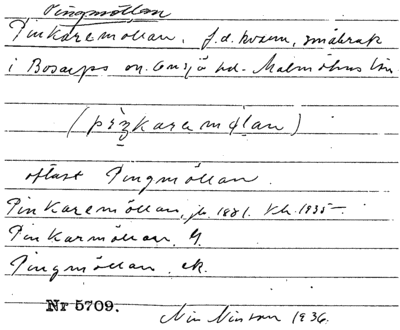 Pingmöllan
Pinkaremöllan. f.d. kvarn, småbruk
i Bosarps sn. Onsjö hd. Malmöhus län
oftast Pingmöllan.
Pinkaremöllan, jb. 1881. kb. 1935–.
Pinkarmöllan. G.
Pingmöllan. ek.
Nr 5709.
Nils Nilsson 1936.